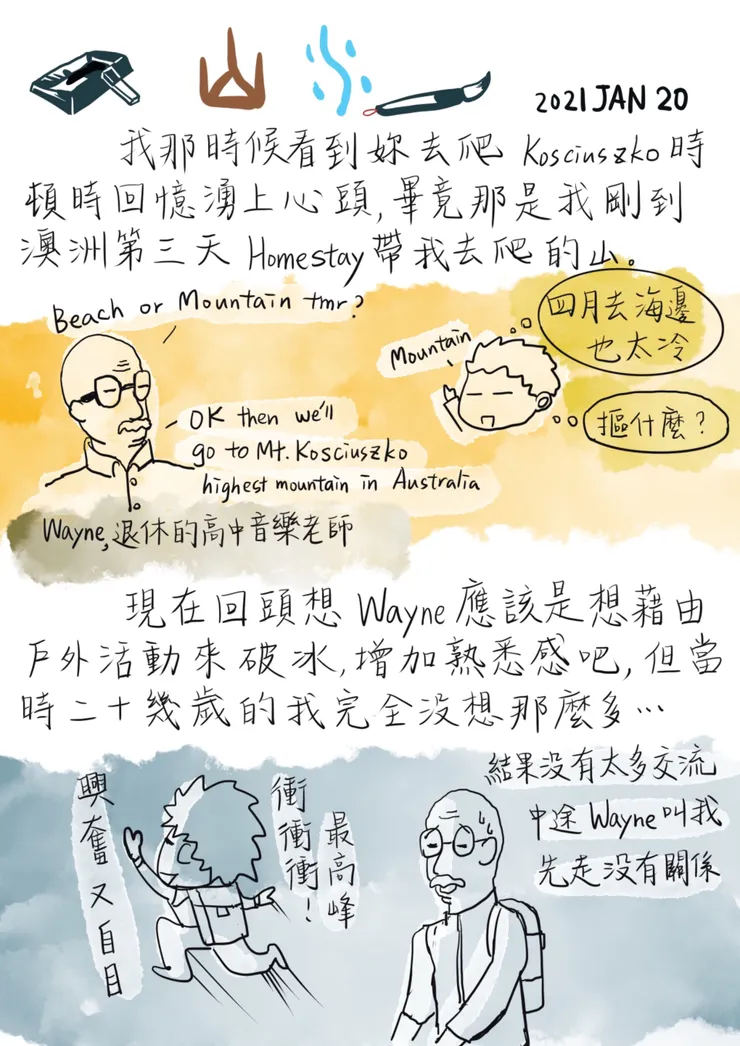 山水
2021 JAN 20
我那時候看到妳去爬 Kosciuszko 時
頓時回憶湧上心頭,畢竟那是我剛到
澳洲第三天 Homestay 帶我去爬的山。
Beach or Mountain tmr?
Mountain
四月去海邊
也太冷
摳什麼?
OK then we'll
go to Mt. Kosciuszko
highest mountain in Australia
Wayne,退休的高中音樂老師
現在回頭想 Wayne 應該是想藉由
戶外活動來破冰,增加熟悉感吧,但當
時二十幾歲的我完全沒想那麼多…
興奮又盲目
衝衝衝!
最高峰
結果沒有太多交流
中途 Wayne 叫我
先走沒有關係